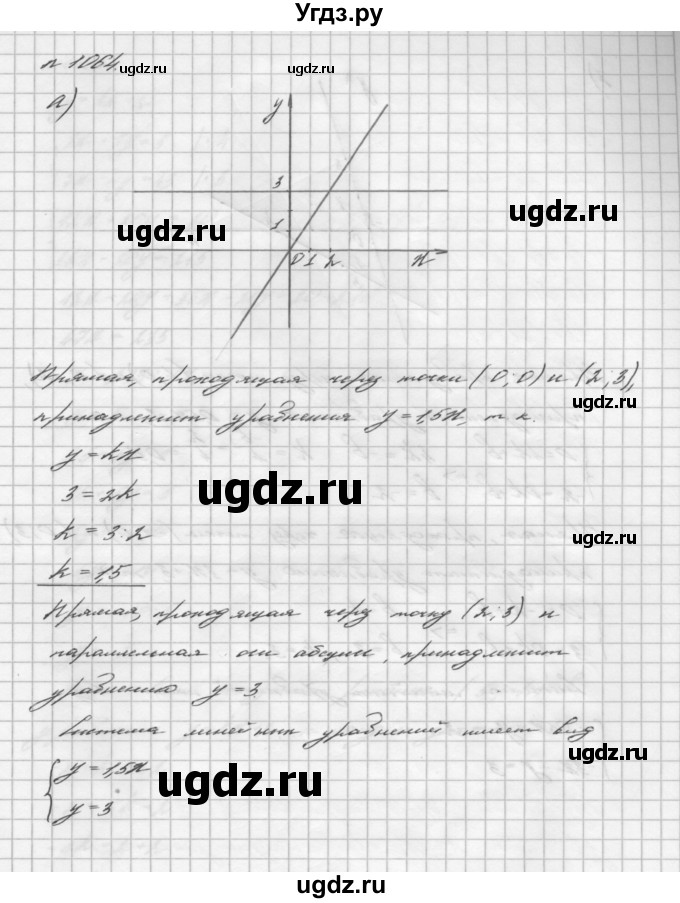 Угдз.ру
n 1064
а)
y
3
1
0 1 2
x
Прямая, проходящая через точки (0;0) и (2;3),
принадлежит уравнения y = 1,5x, т.к.
y = kx
3 = 2k
k = 3:2
k = 1,5
Прямая, проходящая через точку (2;3) и
параллельная оси абсцисс, принадлежит
уравнению y = 3.
Система линейных уравнений имеет вид
{ y = 1,5x
y = 3
ugdz.ru
ugdz.ru
ugdz.ru
ugdz.ru
ugdz.ru
ugdz.ru
ugdz.ru
ugdz.ru
ugdz.ru
ugdz.ru
ugdz.ru
ugdz.ru